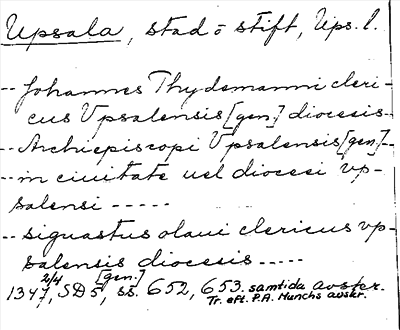 Upsala, stad o stift, Ups. l.
-- Johannes Thydemanni cleri-
cus Vpsalensis [gen.] diocesis-
-- Archiepiscopi Vpsalensis [gen.] --
-- in ciuitate uel diocesi vp-
salensi -----
-- siguastus olaui clericus vp-
salensis diocesis -----
2/4 [gen.]
1347, SD5, ss. 652, 653. samtida avskr.
Tr. eft. P.A. Munchs avskr.